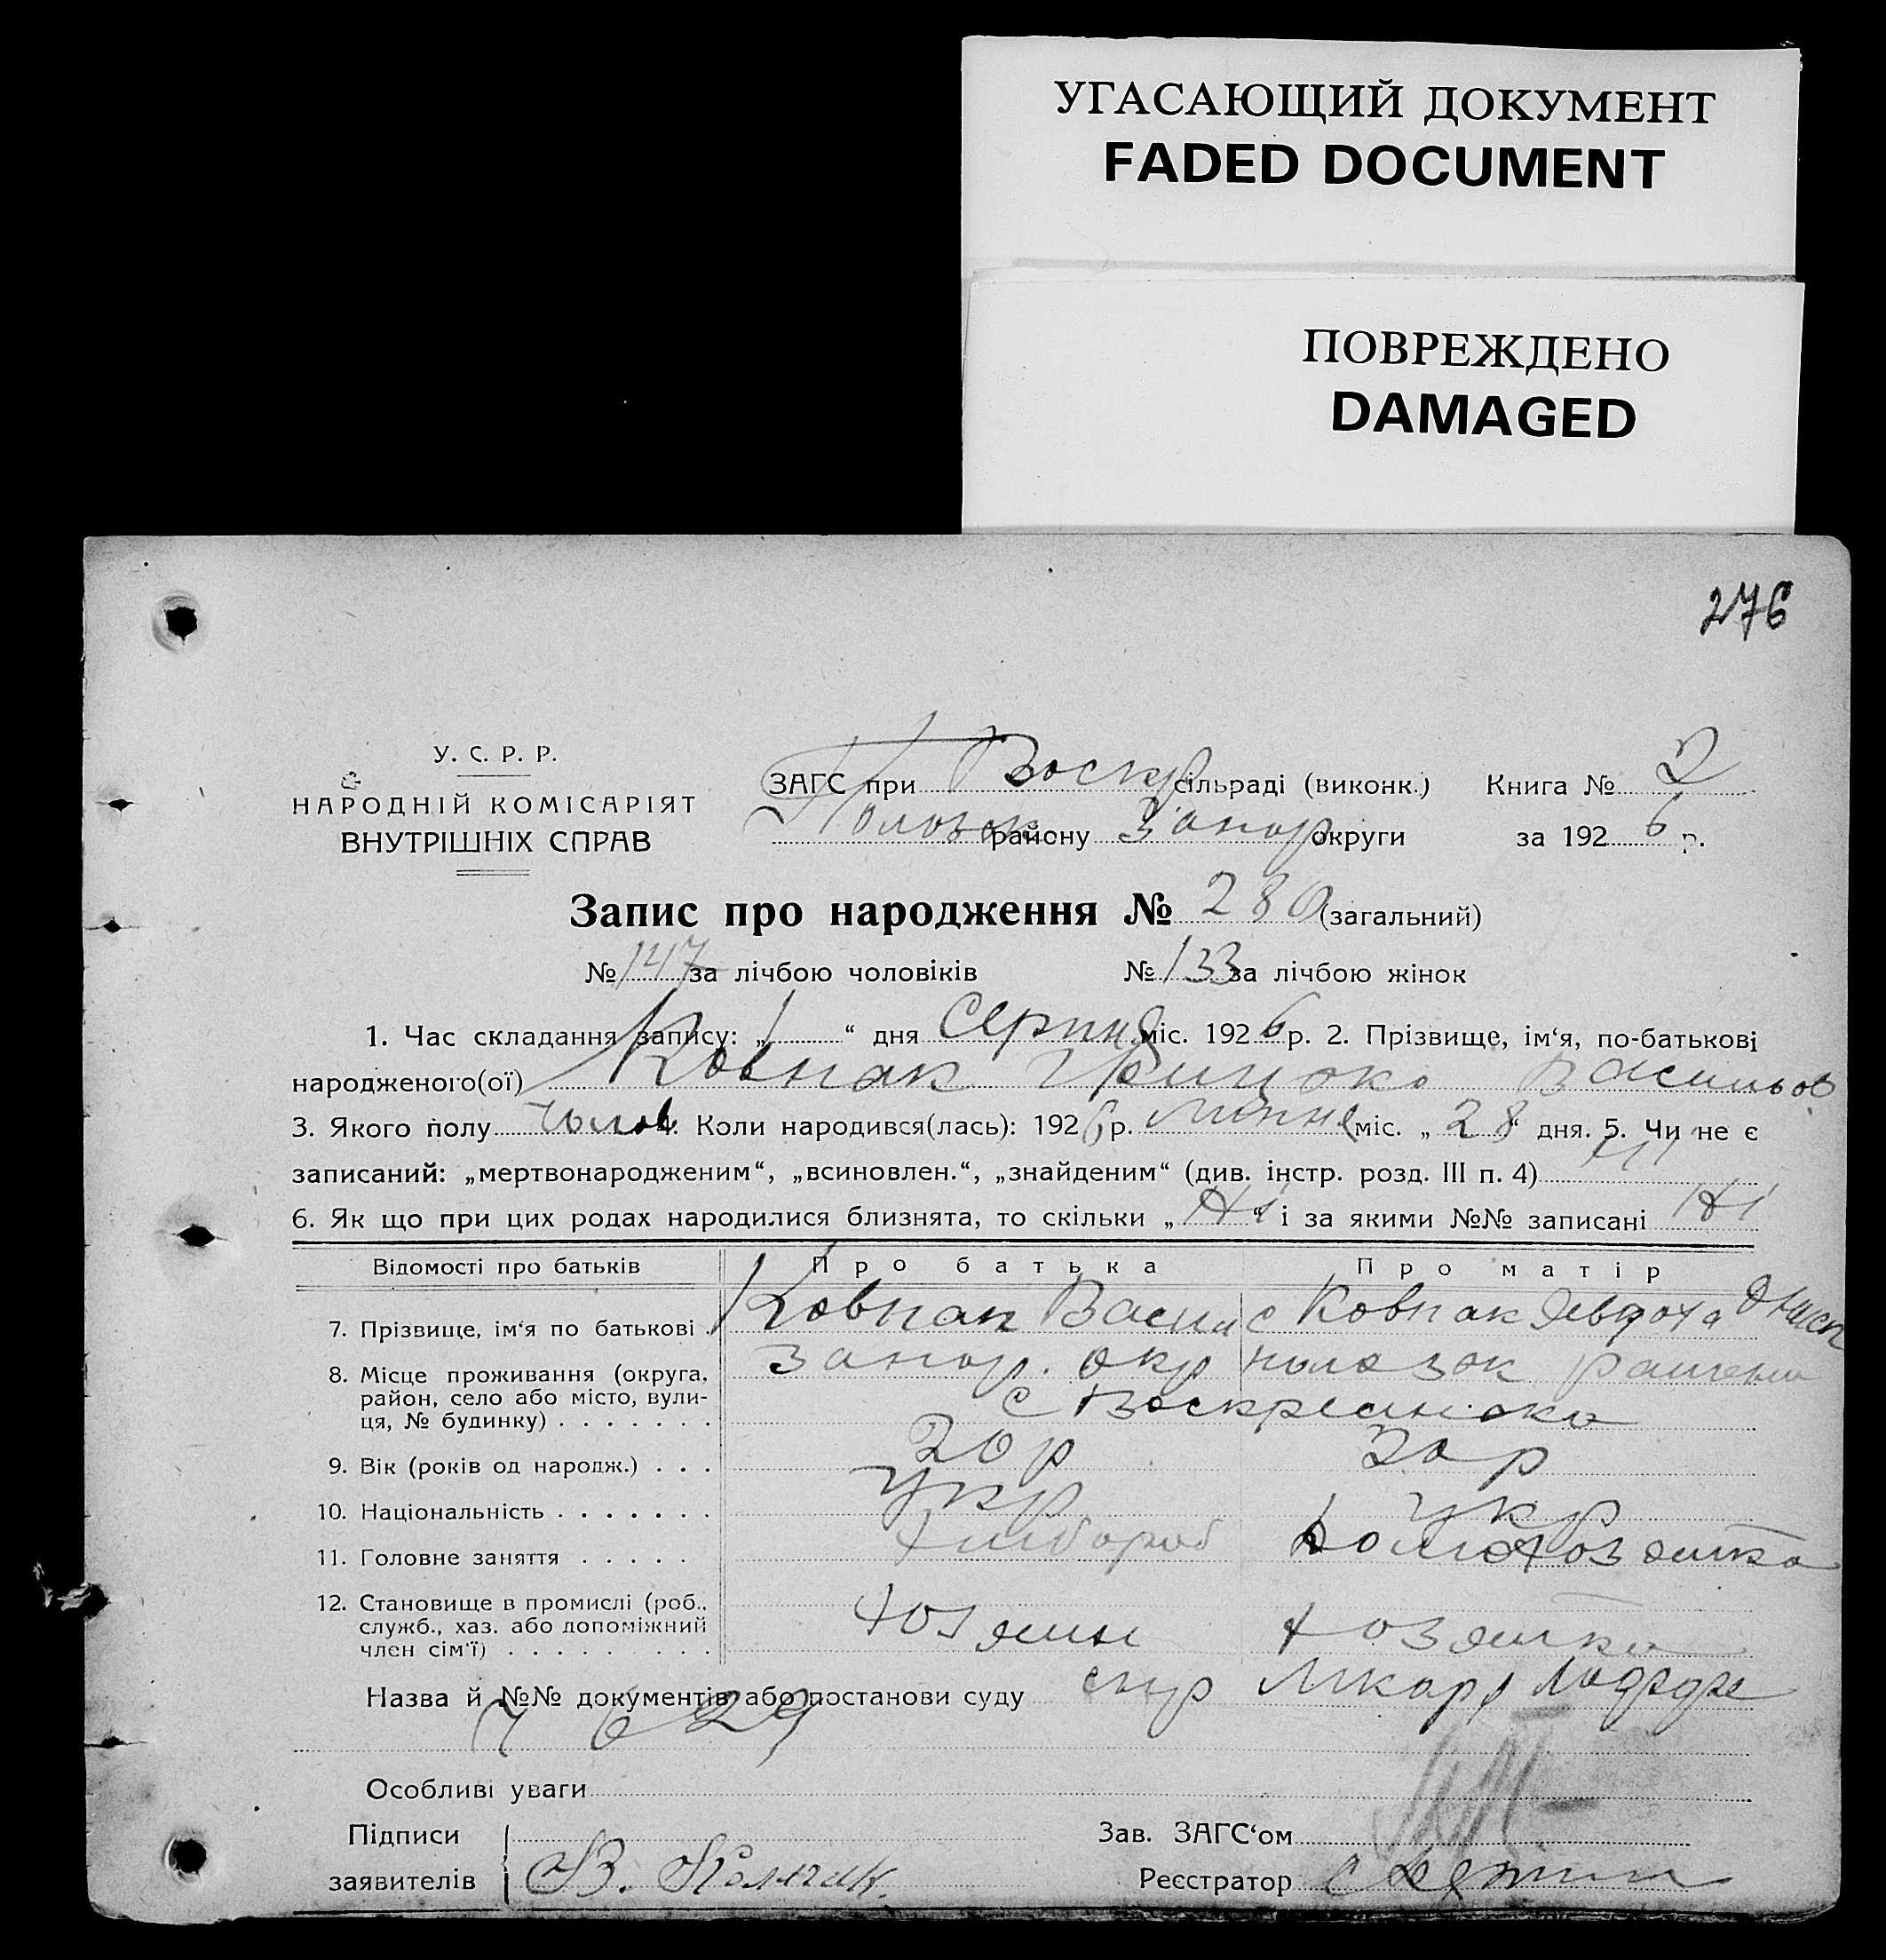 УГАСАЮЩИЙ ДОКУМЕНТ
FADED DOCUMENT
ПОВРЕЖДЕНО
DAMAGED
276
У. С. Р. Р.
НАРОДНІЙ КОМІСАРІЯТ
ВНУТРІШНІХ СПРАВ
ЗАГС при Воскр сільраді (виконк.) Книга № 2
Пологов району Запор округи за 1926 р.
Запис про народження № 280 (загальний)
№ 147 за лічбою чоловіків № 133 за лічбою жінок
1. Час складання запису: „1“ дня Серпня міс. 1926 р. 2. Прізвище, ім‘я, по-батькові
народженого(ої) Ковпак Грицько Васильов
3. Якого полу чолов 4. Коли народився(лась): 1926 р. Липня міс. „28“ дня. 5. Чи не є
записаний: „мертвонародженим“, „всиновлен.“, „знайденим“ (див. інстр. розд. III п. 4) Ні
6. Як що при цих родах народилися близнята, то скільки „Ні“ і за якими №№ записані Ні
Відомості про батьків Про батька Про матір
7. Прізвище, ім‘я по батькові Ковпак Васил С Ковпак Явдоха
8. Місце проживання (округа, район, село або місто, вулиця, № будинку) Запор. окр
с Воскресенка
9. Вік (років од народж.) 20 р 20 р
10. Національність укр укр
11. Головне заняття Хлібороб Домохозяйка
12. Становище в промислі (роб., служб., хаз. або допоміжний член сім‘ї) Хозяин хозяйка
Назва й №№ документів або постанови суду
629
Особливі уваги
Підписи Зав. ЗАГС‘ом
заявителів В. Ковпак. Реєстратор